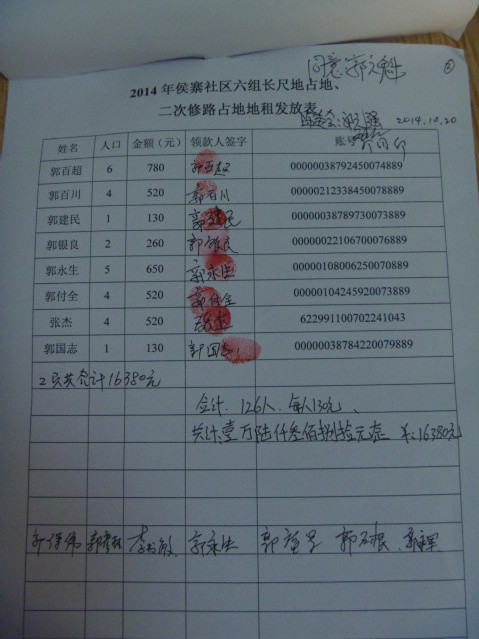 同意 郭文魁
2014年侯寨社区六组长尺地占地、
二次修路占地地租发放表
2014.10.20
姓名 人口 金额（元） 领款人签字 账
郭百超 6 780 郭百超 00000038792450074889
郭百川 4 520 郭百川 00000212338450078889
郭建民 1 130 郭建民 00000038789730073889
郭银良 2 260 郭银良 00000022106700076889
郭永生 5 650 郭永生 00000108006250070889
郭付全 4 520 郭付全 00000104245920073889
张杰 4 520 张杰 622991100702241043
郭国志 1 130 郭国志 00000038784220079889
2页共合计16380元
合计. 126人. 每人130元、
共计:壹万陆仟叁佰捌拾元整 ¥:16380元
郭永生